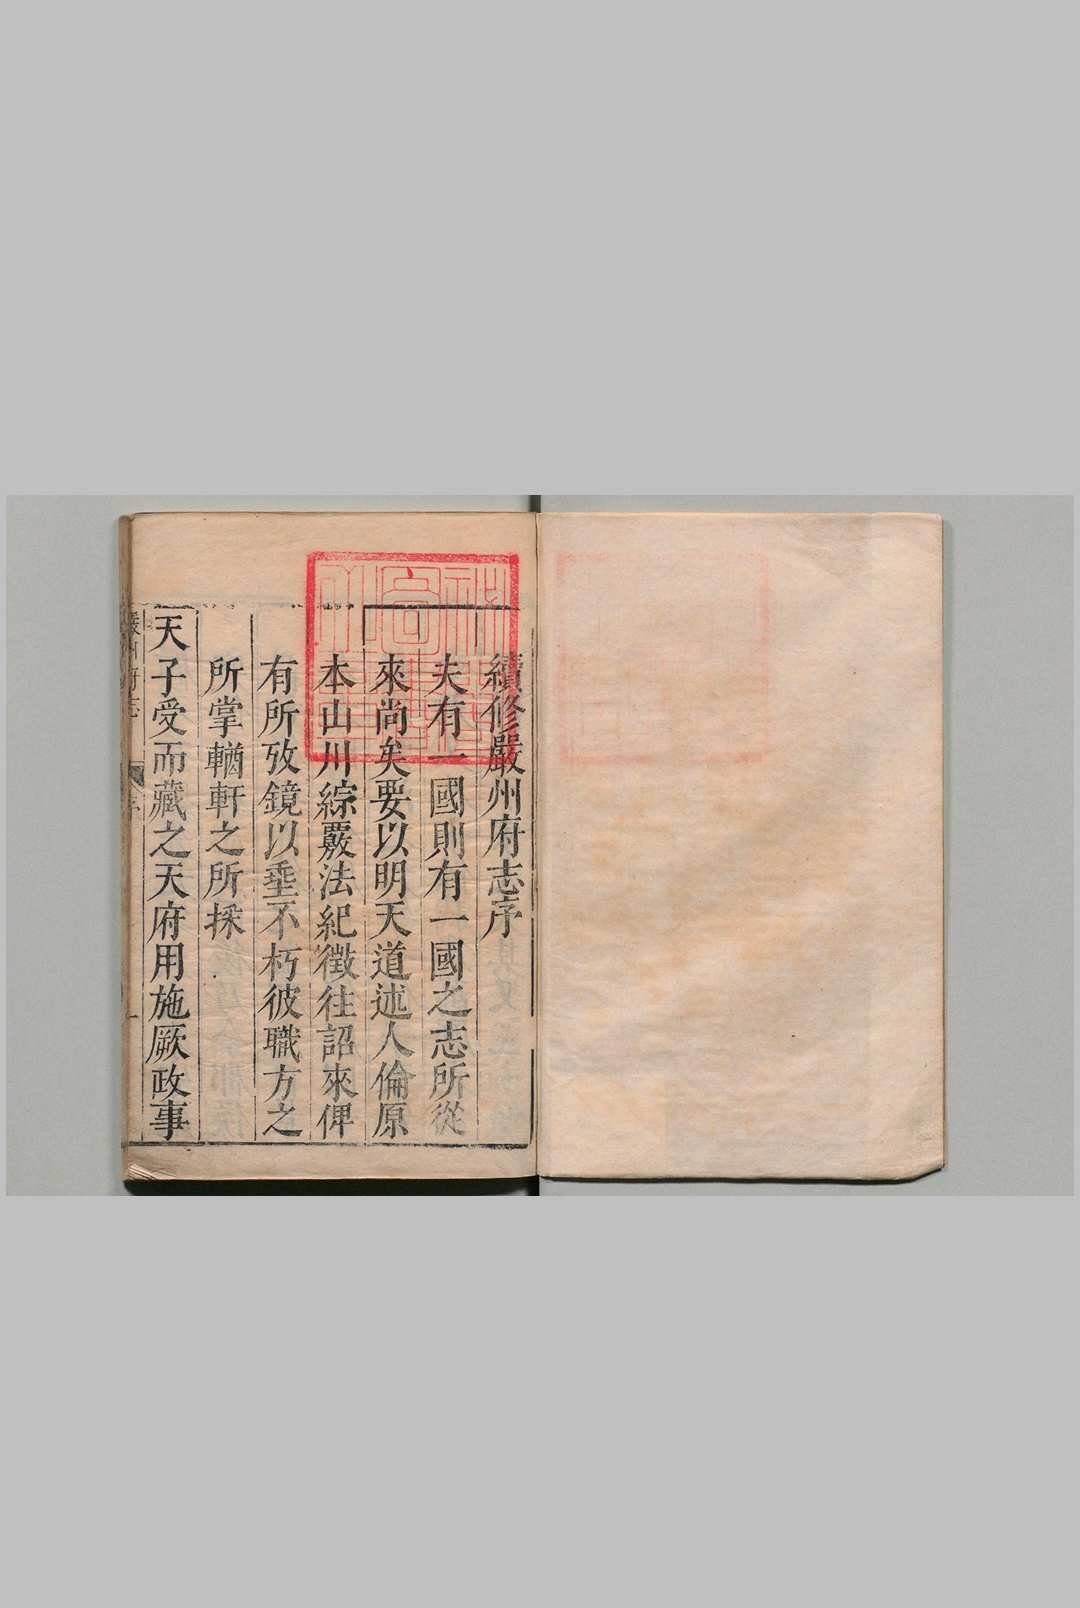 續修嚴州府志序
夫有一國則有一國之志所從
來尚矣要以明天道述人倫原
本山川綜覈法紀徵往詔來俾
有所攷鏡以垂不朽彼職方之
所掌輶軒之所採
天子受而藏之天府用施厥政事